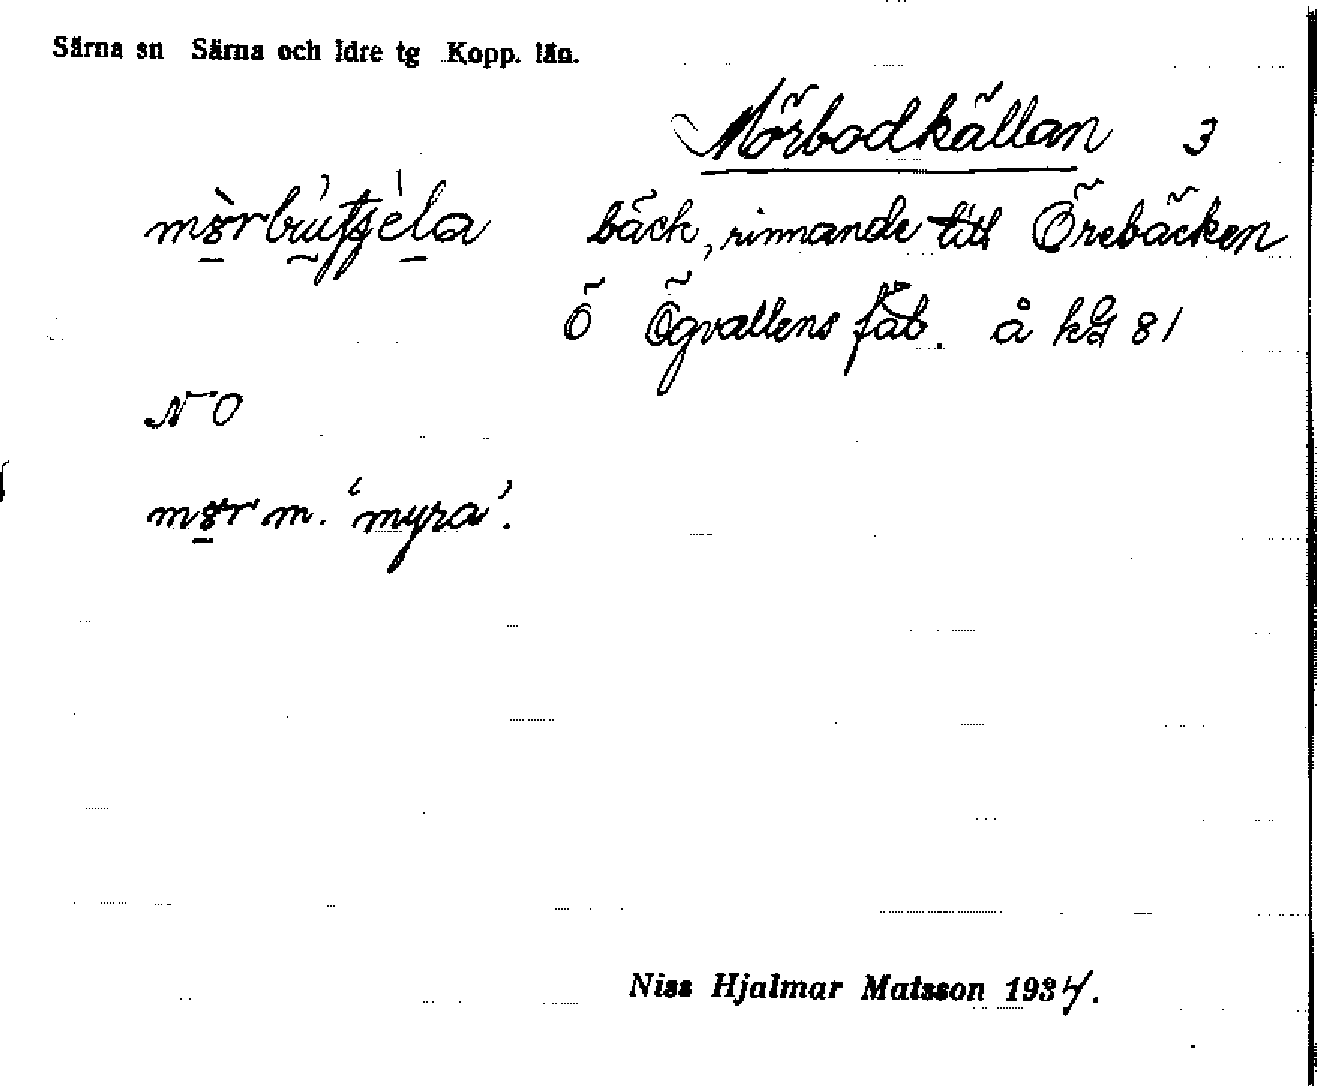 Särna sn Särna och Idre tg Kopp. län.
Mörbodkällan 3
bäck, rinnande till Örebäcken
Ö Ögvallens fäb. å kbl 81
NO
m. 'myra'.
Niss Hjalmar Matsson 1934.